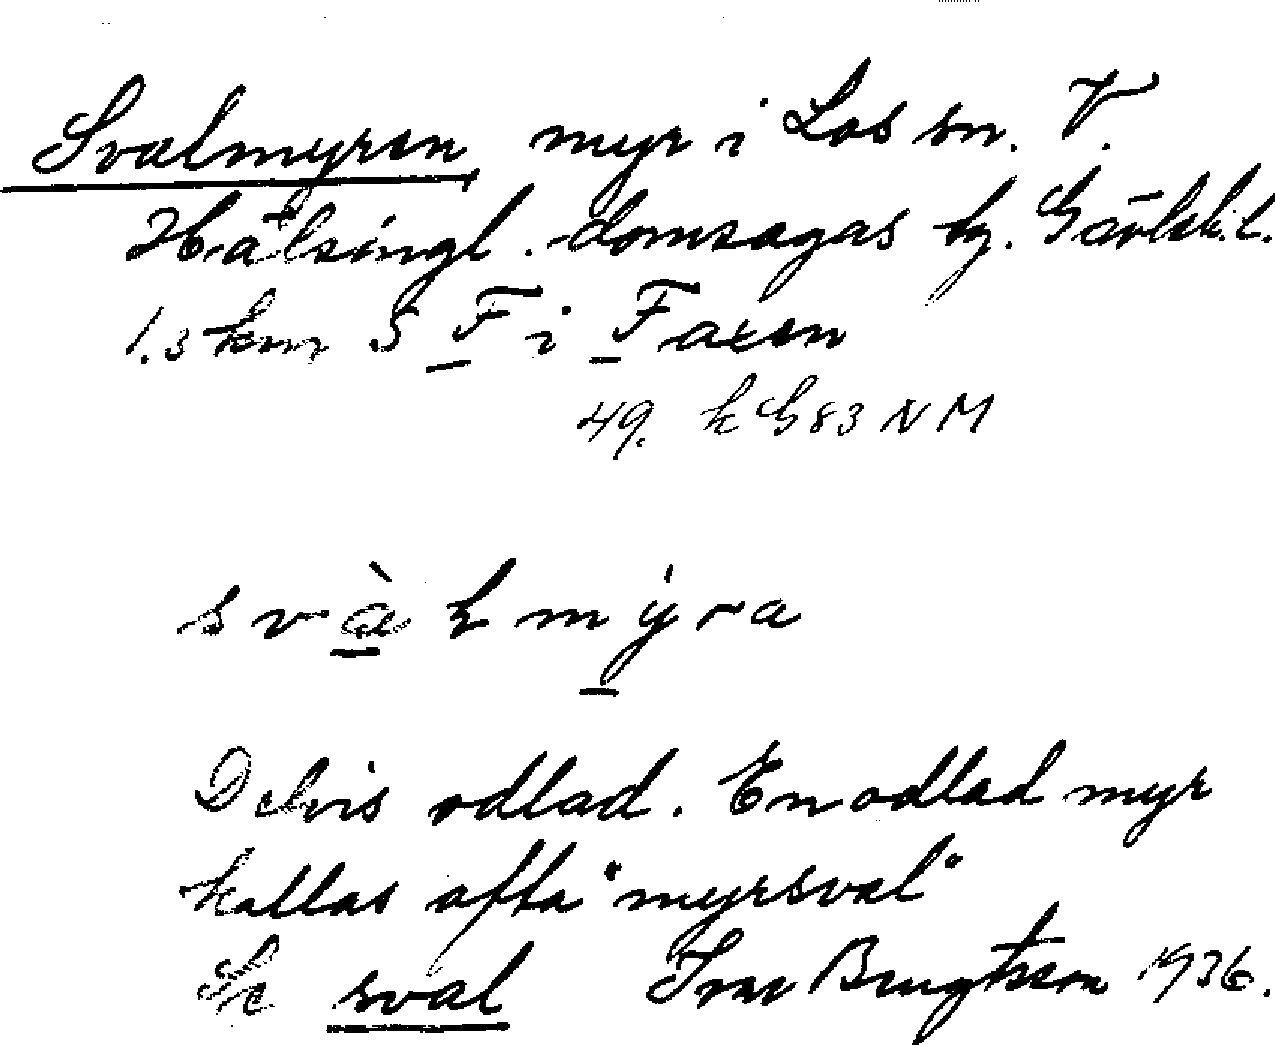 Svalmyren myr i Los sn. V.
Hälsingl. domsagas tg. Gävleb.l.
1.3 km S F i Faxen
49. k G83 NM
svàlmýra
Delvis odlad. En odlad myr
kallas ofta "myrsval"
Se sval Ivar Bengtsson 1936.